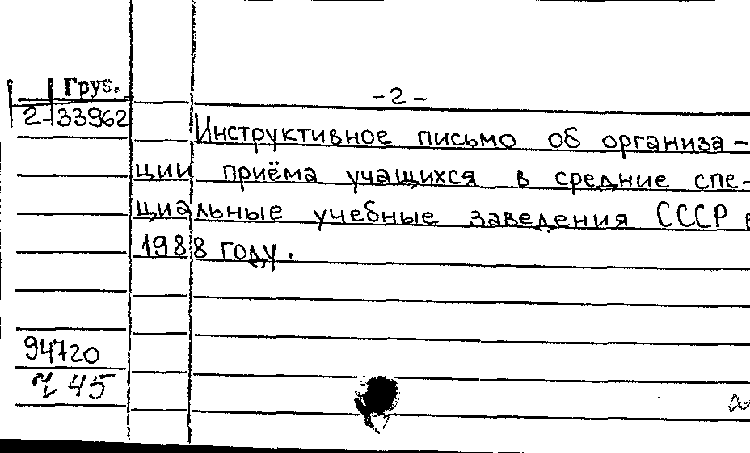 Груз.
-2-
2-33962
Инструктивное письмо об организа-
ции приёма учащихся в средние спе-
циальные учебные заведения СССР в
1988 году.
94720
45